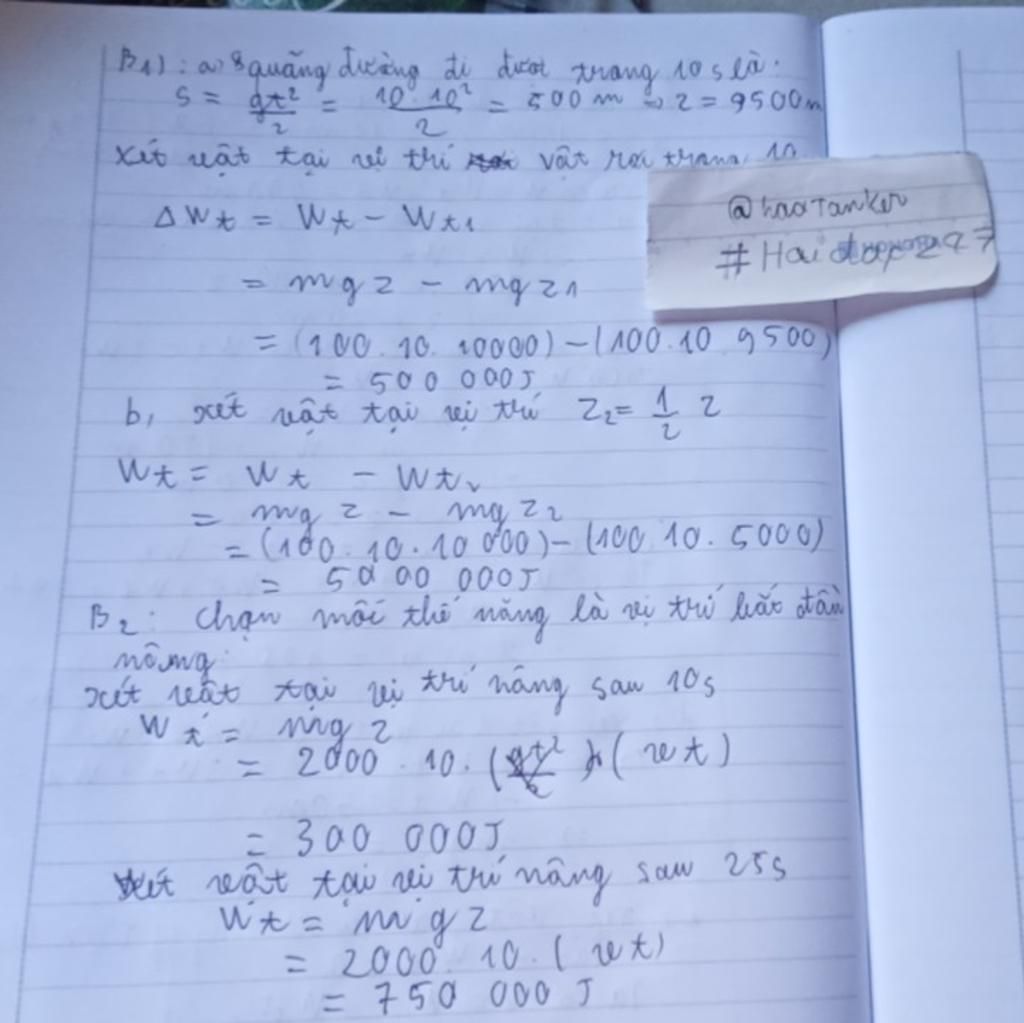 B1): a) quãng đường đi được trong 10s là:
S = gt²/2 = 10.10²/2 = 500m → z = 9500m
Xét vật tại vị trí vật rơi trong 10
@haoTanker
#Hai
ΔWt = Wt - Wt1
= mgz - mgz1
= (100.10.10000) - (100.10 9500)
= 500 000J
b, xét vật tại vị trí Z2 = 1/2 z
Wt = Wt - Wt2
= mgz - mgz2
= (100.10.10 000) - (100 10. 5000)
= 5000 000J
B2: Chọn mốc thế năng là vị trí bắt đầu
nâng:
xét vật tại vị trí nâng sau 10s
Wt = mgz
= 2000.10.(vt)
= 300 000J
Xét vật tại vị trí nâng sau 25s
Wt = mgz
= 2000.10.(vt)
= 750 000 J